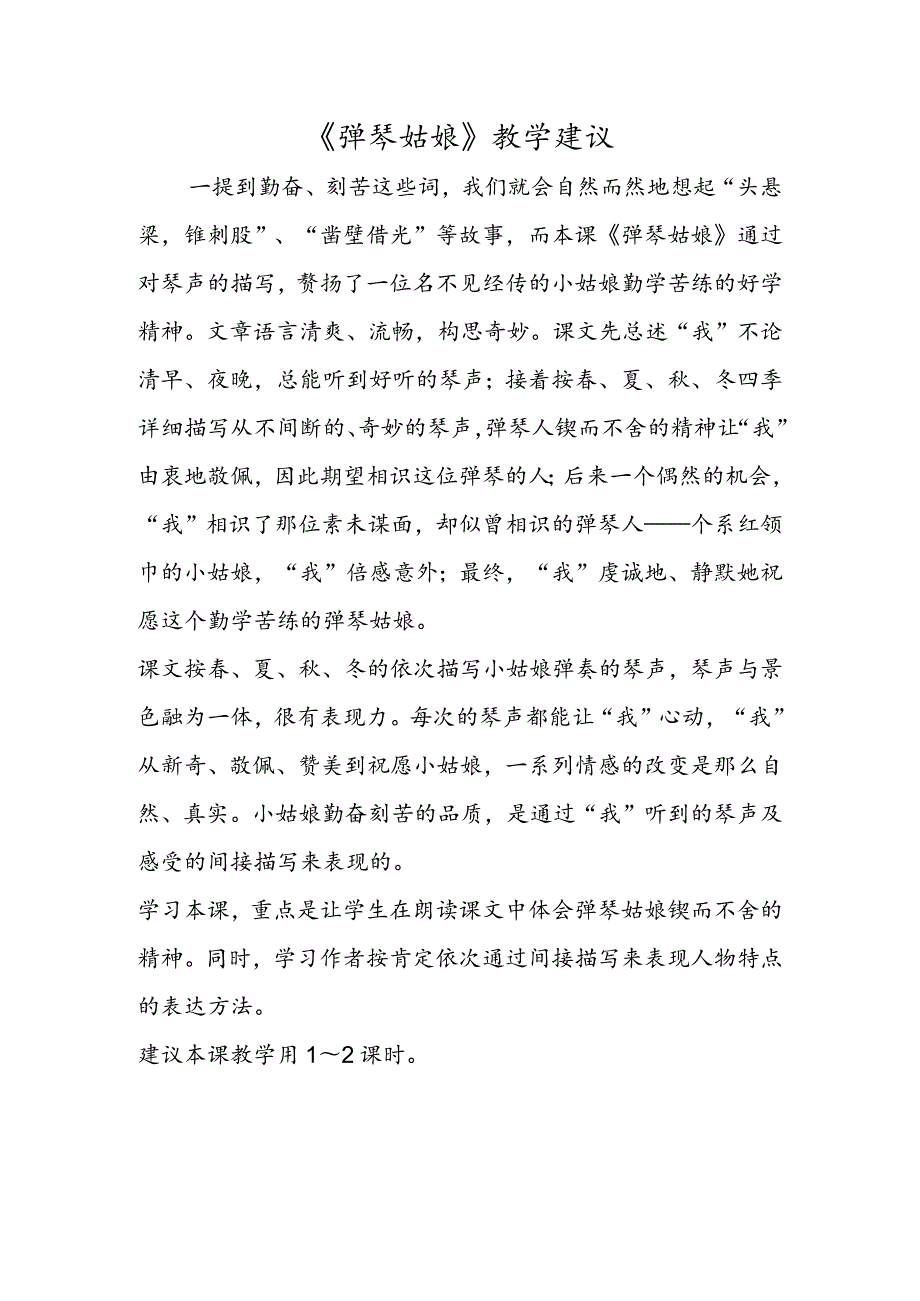 《弹琴姑娘》教学建议
一提到勤奋、刻苦这些词，我们就会自然而然地想起“头悬
梁，锥刺股”、“凿壁借光”等故事，而本课《弹琴姑娘》通过
对琴声的描写，赘扬了一位名不见经传的小姑娘勤学苦练的好学
精神。文章语言清爽、流畅，构思奇妙。课文先总述“我”不论
清早、夜晚，总能听到好听的琴声；接着按春、夏、秋、冬四季
详细描写从不间断的、奇妙的琴声，弹琴人锲而不舍的精神让“我”
由衷地敬佩，因此期望相识这位弹琴的人；后来一个偶然的机会，
“我”相识了那位素未谋面，却似曾相识的弹琴人——个系红领
巾的小姑娘，“我”倍感意外；最终，“我”虔诚地、静默她祝
愿这个勤学苦练的弹琴姑娘。
课文按春、夏、秋、冬的依次描写小姑娘弹奏的琴声，琴声与景
色融为一体，很有表现力。每次的琴声都能让“我”心动，“我”
从新奇、敬佩、赞美到祝愿小姑娘，一系列情感的改变是那么自
然、真实。小姑娘勤奋刻苦的品质，是通过“我”听到的琴声及
感受的间接描写来表现的。
学习本课，重点是让学生在朗读课文中体会弹琴姑娘锲而不舍的
精神。同时，学习作者按肯定依次通过间接描写来表现人物特点
的表达方法。
建议本课教学用1～2课时。